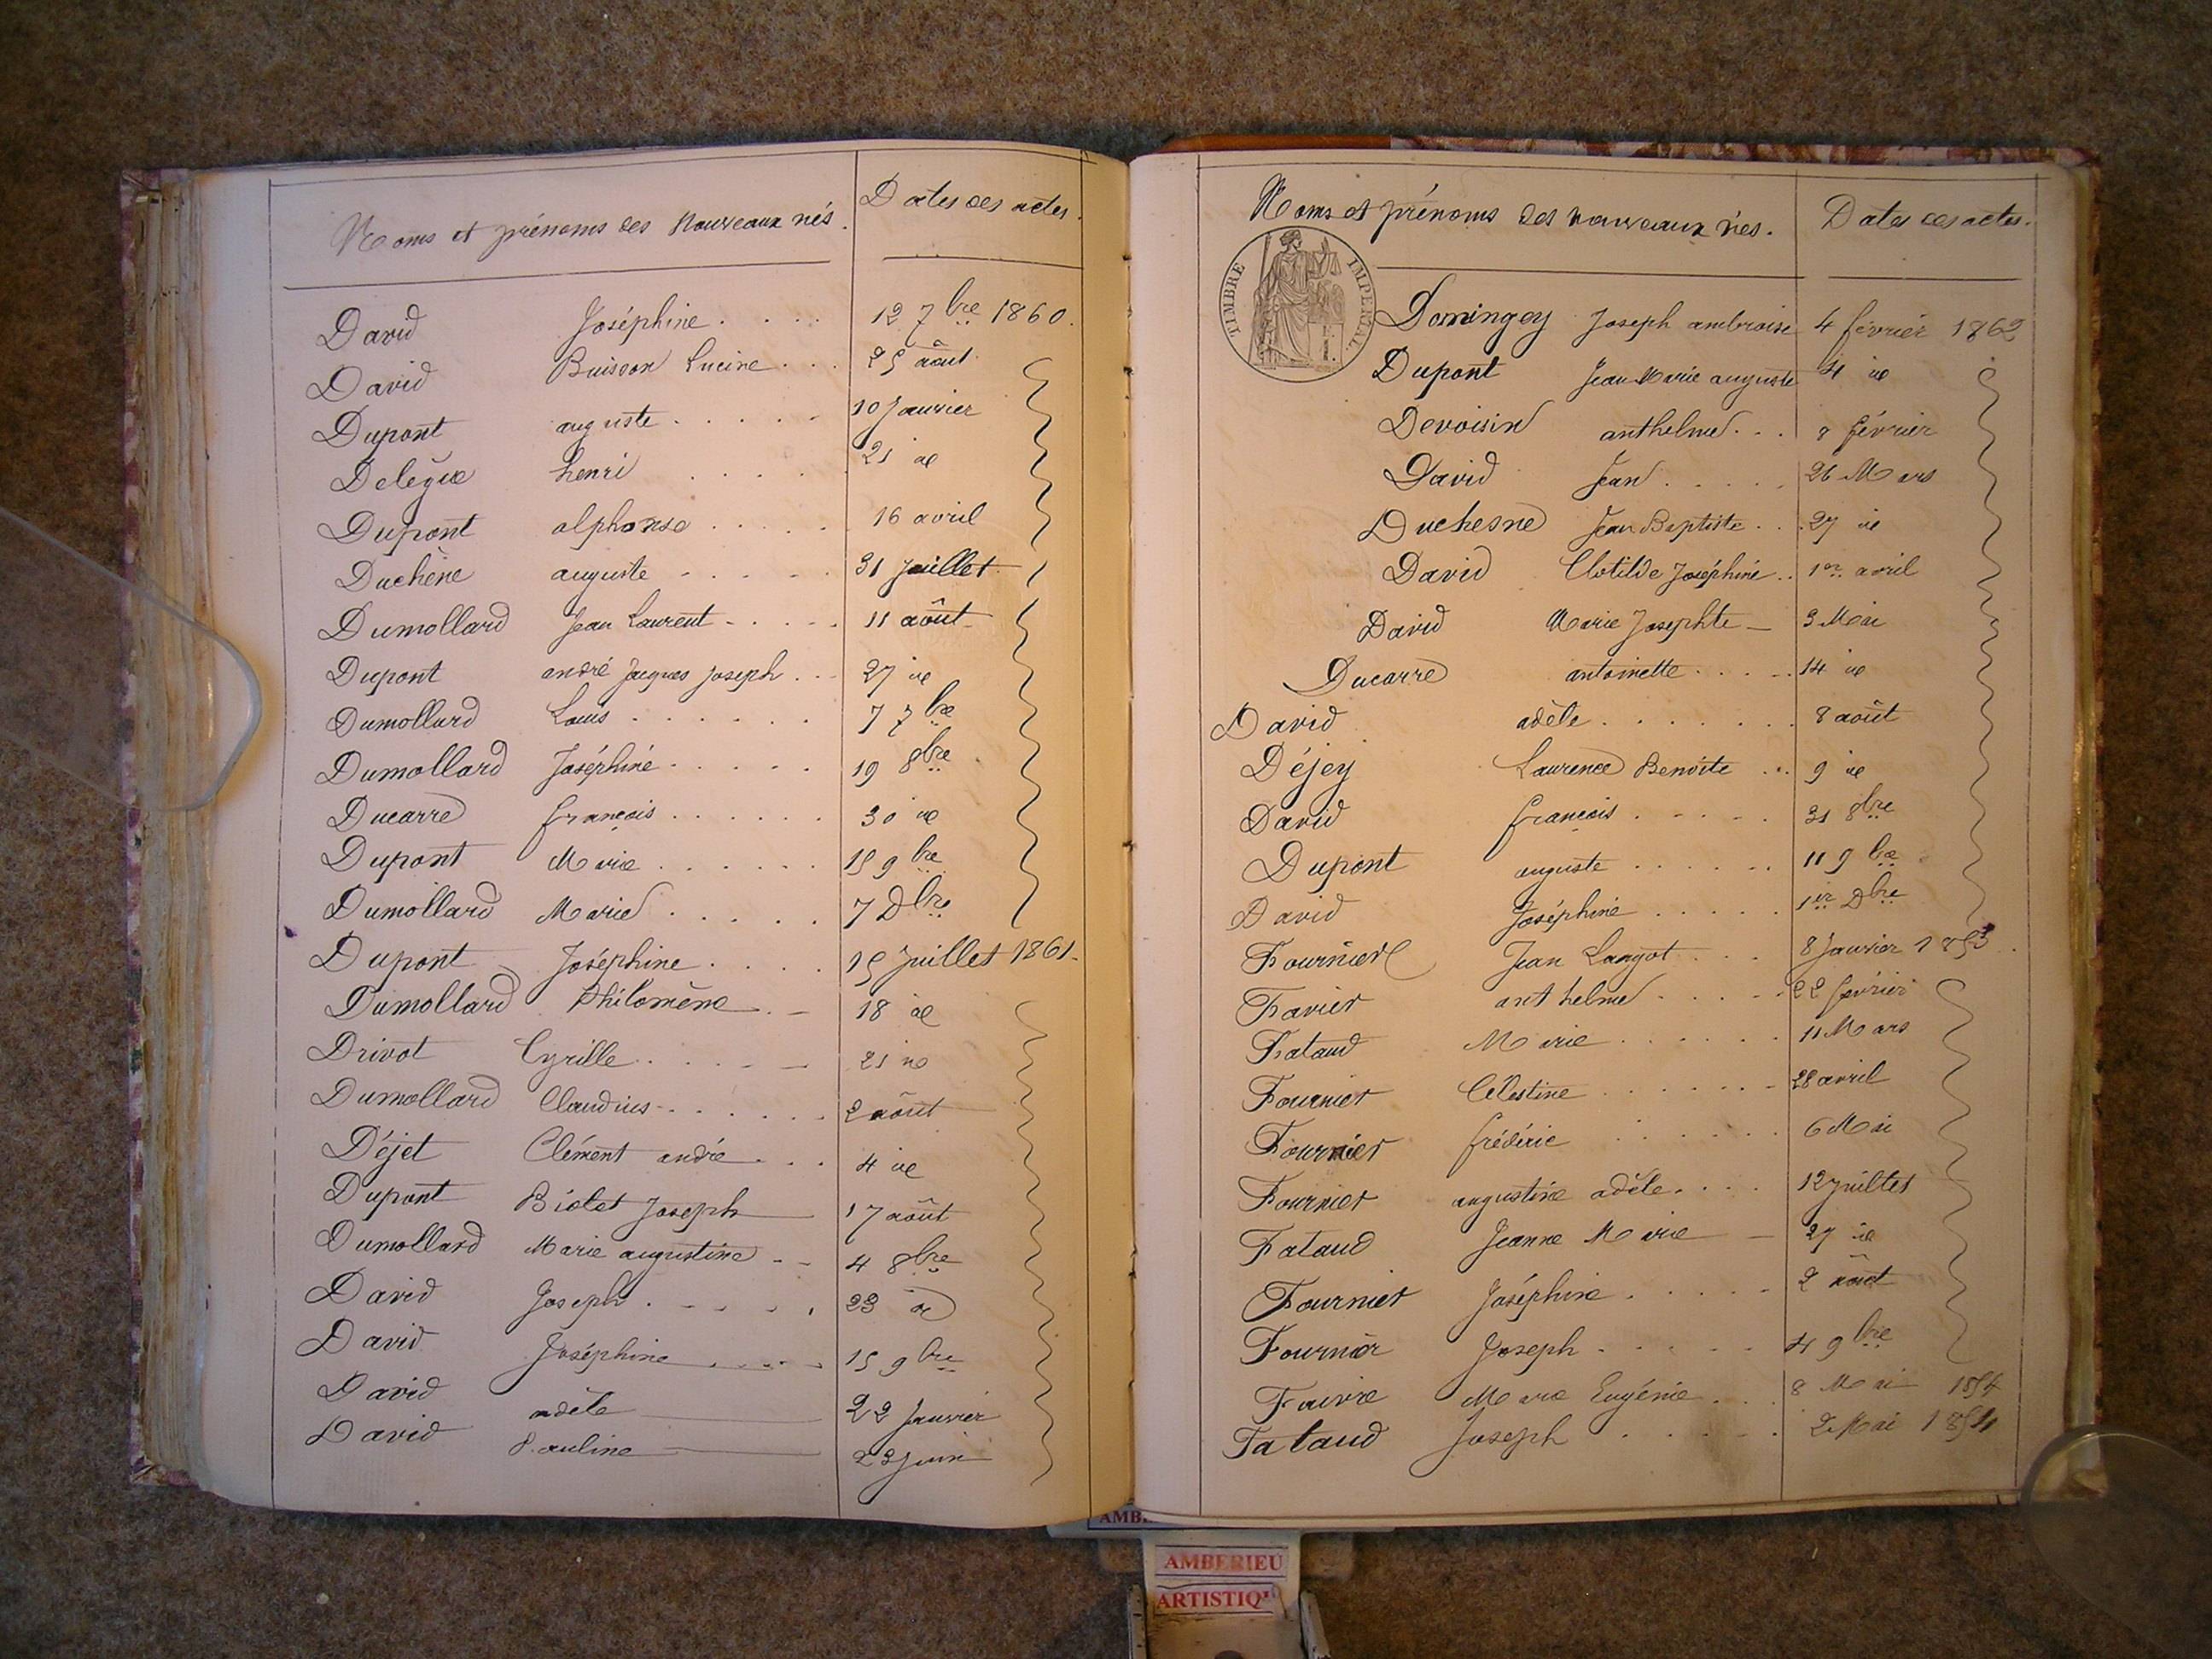 Noms et prénoms des nouveaux nés. Dates des actes.
David Joséphine . . . . 12 7bre 1860.
David Buisson Lucine . . . 25 août
Dupont auguste . . . . . 10 Janvier
henri . . . . 21 id
Dupont alphonse . . . . . 16 avril
Duchêne auguste . . . . 31 Juillet
Dumollard Jean Laurent . . . . 11 août
Dupont andré Jacques Joseph . . . 27 id
Dumollard Louis . . . . . . 7 7bre
Dumollard Joséphine . . . . . 19 8bre
Ducarre françois . . . . . . 30 id
Dupont Marie . . . . . . 15 9bre
Dumollard Marie . . . . . 7 Dbre
Dupont Joséphine . . . . 15 Juillet 1861.
Dumollard Philomène . - 18 id
Drivot Cyrille . . . . - 21 id
Dumollard Claudius . . . . . . 2 août
Déjet Clément andré . . . 4 id
Dupont Biolet Joseph 17 août
Dumollard Marie augustine - - 4 8bre
David Joseph . - - - . 23 id
David Joséphine . . . . 15 9bre
David adèle 22 Janvier
David Pauline 23 Juin
Noms et prénoms des nouveaux nés. Dates des actes.
TIMBRE IMPERIAL
Domingey Joseph ambroise 4 février 1862
Dupont Jean Marie auguste 4 id
Devoisin anthelme . . . 8 février
David Jean . . . . . 26 Mars
Duchesne Jean Baptiste . . . 27 id
David Clotilde Joséphine . . 1er avril
David Marie Josephte - 3 Mai
Ducarre antoinette . . . . . 14 id
David adèle . . . . . . . 8 août
Déjey Laurence Benoite . . . 9 id
David françois . . . . . 31 8bre
Dupont auguste . . . . . . 11 9bre
David Joséphine . . . . . 1er Dbre
Fournier Jean Langot . . . 8 Janvier 1853.
Favier anthelme . . . . . 22 février
Fataud Marie . . . . . . 11 Mars
Fournier Célestine . . . . . . 28 avril
Fournier frédéric . . . . . . 6 Mai
Fournier augustine adèle . . . . 12 Juillet
Fataud Jeanne Marie - 27 id
Fournier Joséphine . . . . . 2 août
Fournier Joseph . . . . . 4 9bre
Faivre Marie Eugénie . . . 8 Mai 1854
Fataud Joseph . . . . . 2 Mai 1854
AMBERIEU
ARTISTIQ